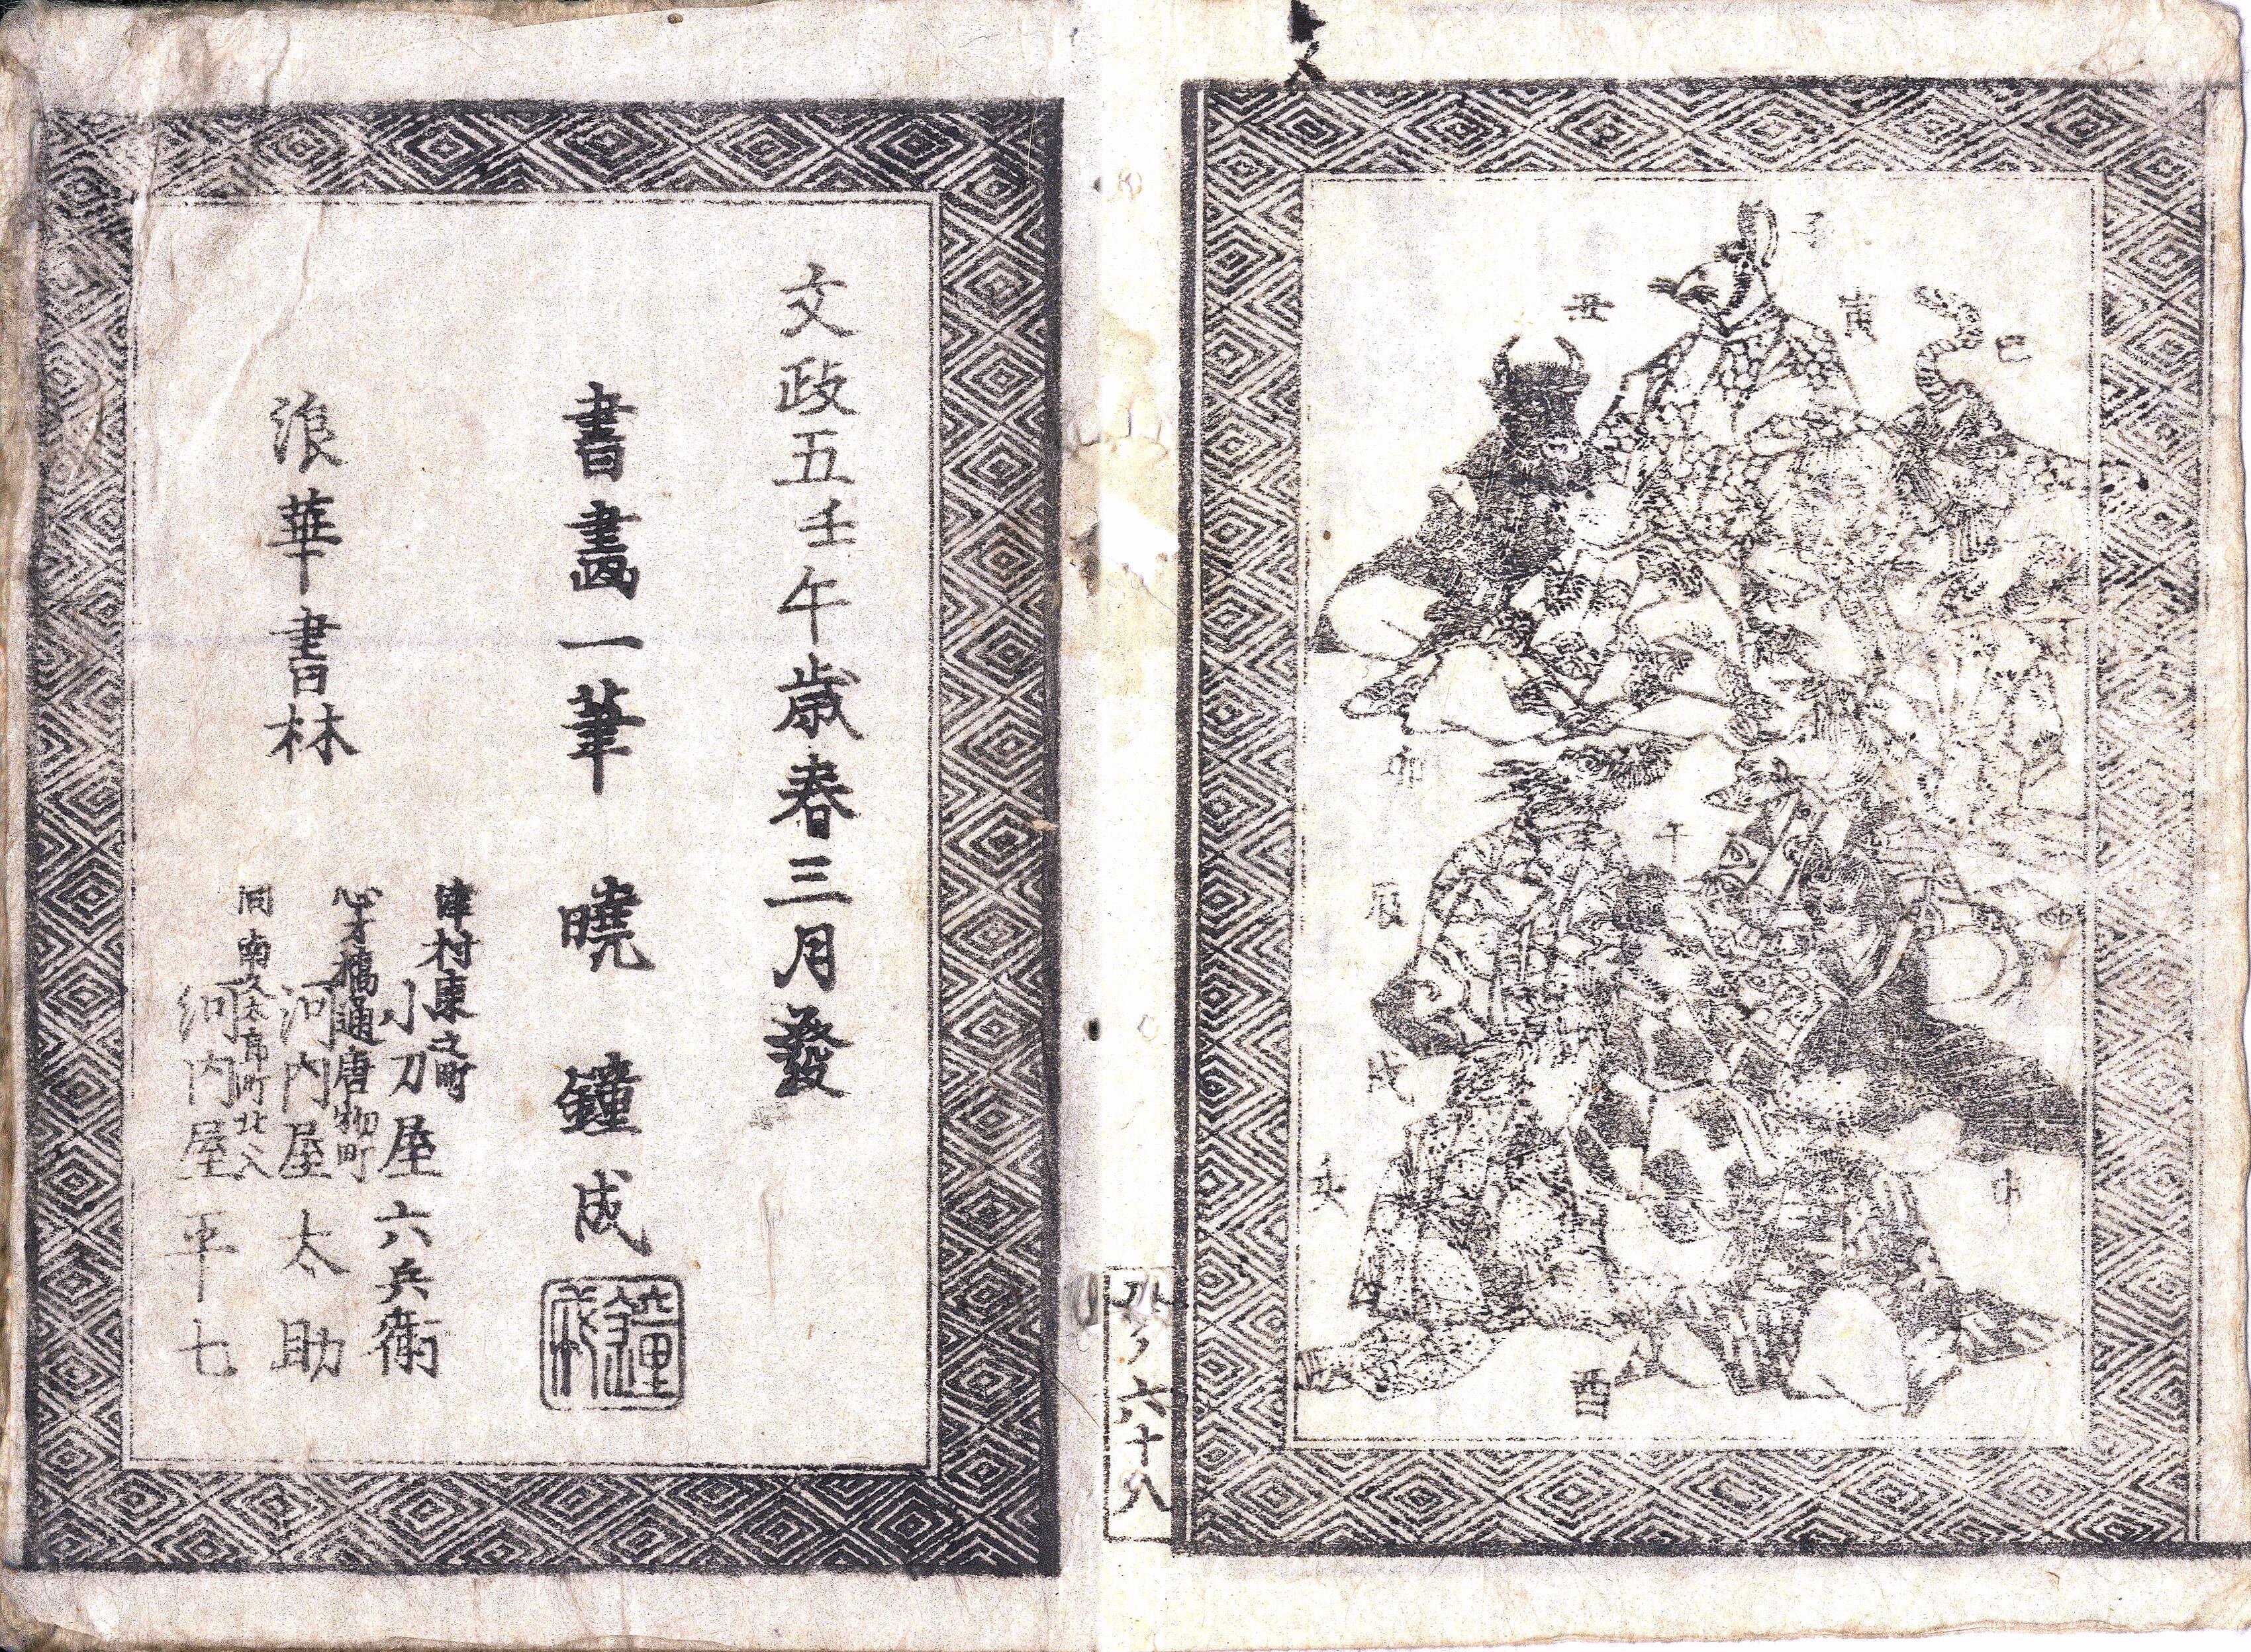 子
丑
寅
巳
卯
午
辰
戌
亥
申
酉
六十八
文政五壬午歳春三月發
書畫一筆 曉 鐘成
鐘成
浪華書林
津村東之町
小刀屋六兵衛
心才橋通唐物町
河内屋太助
同南久太郎町北入
河内屋平七